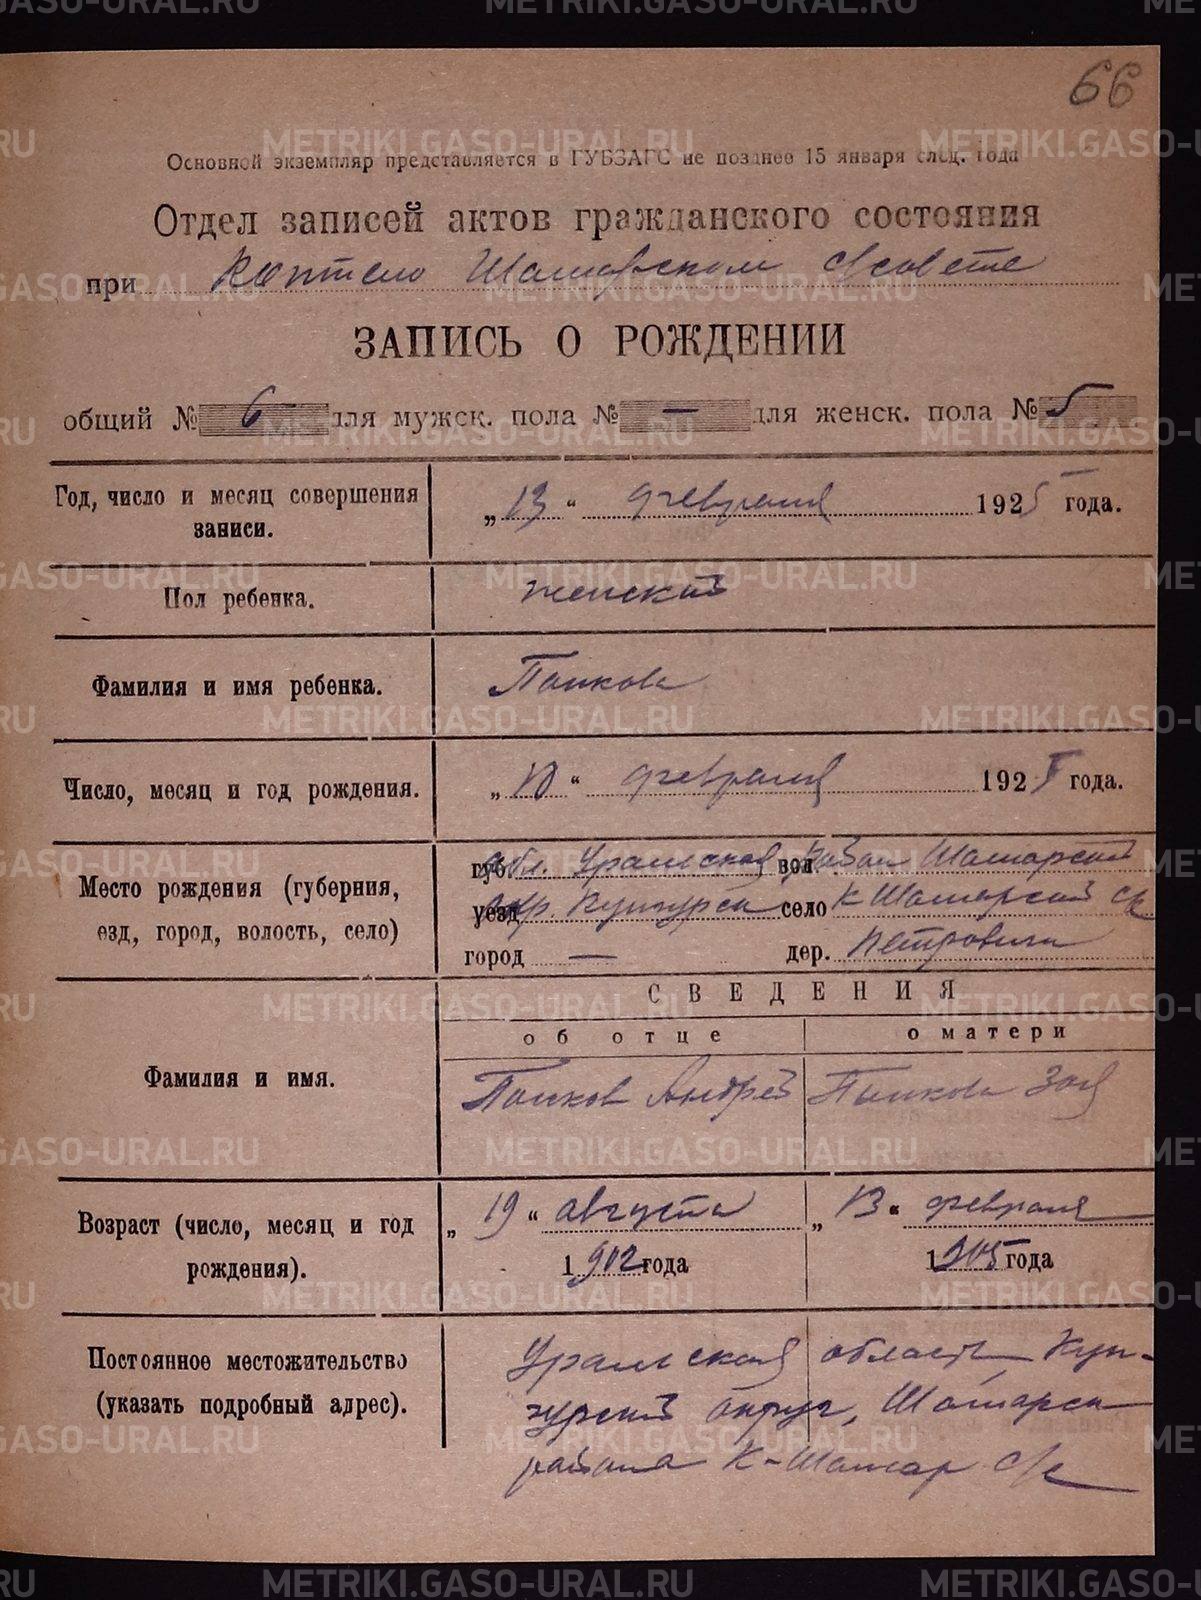 66
Основной экземпляр представляется в ГУБЗАГС не позднее 15 января след. года
Отдел записей актов гражданского состояния
при Коптело Шамарском с/совете
ЗАПИСЬ О РОЖДЕНИИ
общий № 6 для мужск. пола № — для женск. пола № 5
Год, число и месяц совершения записи.
„13“ февраля 1925 года.
Пол ребенка.
женский
Фамилия и имя ребенка.
Панкова
Число, месяц и год рождения.
„10“ февраля 1925 года.
Место рождения (губерния,
езд, город, волость, село)
губ. обл. Уральская вол. район Шамарский
уезд окр. Кунгурск село К Шамарский с/с
город — дер. Петровичи
СВЕДЕНИЯ
об отце
о матери
Фамилия и имя.
Панков Андрей
Панкова Зоя
Возраст (число, месяц и год
рождения).
„19“ августа
1902 года
„13“ февраля
1905 года
Постоянное местожительство
(указать подробный адрес).
Уральская область Кун-
гурский округ, Шамарск
района К-Шамар с/с
METRIKI.GASO-URAL.RU